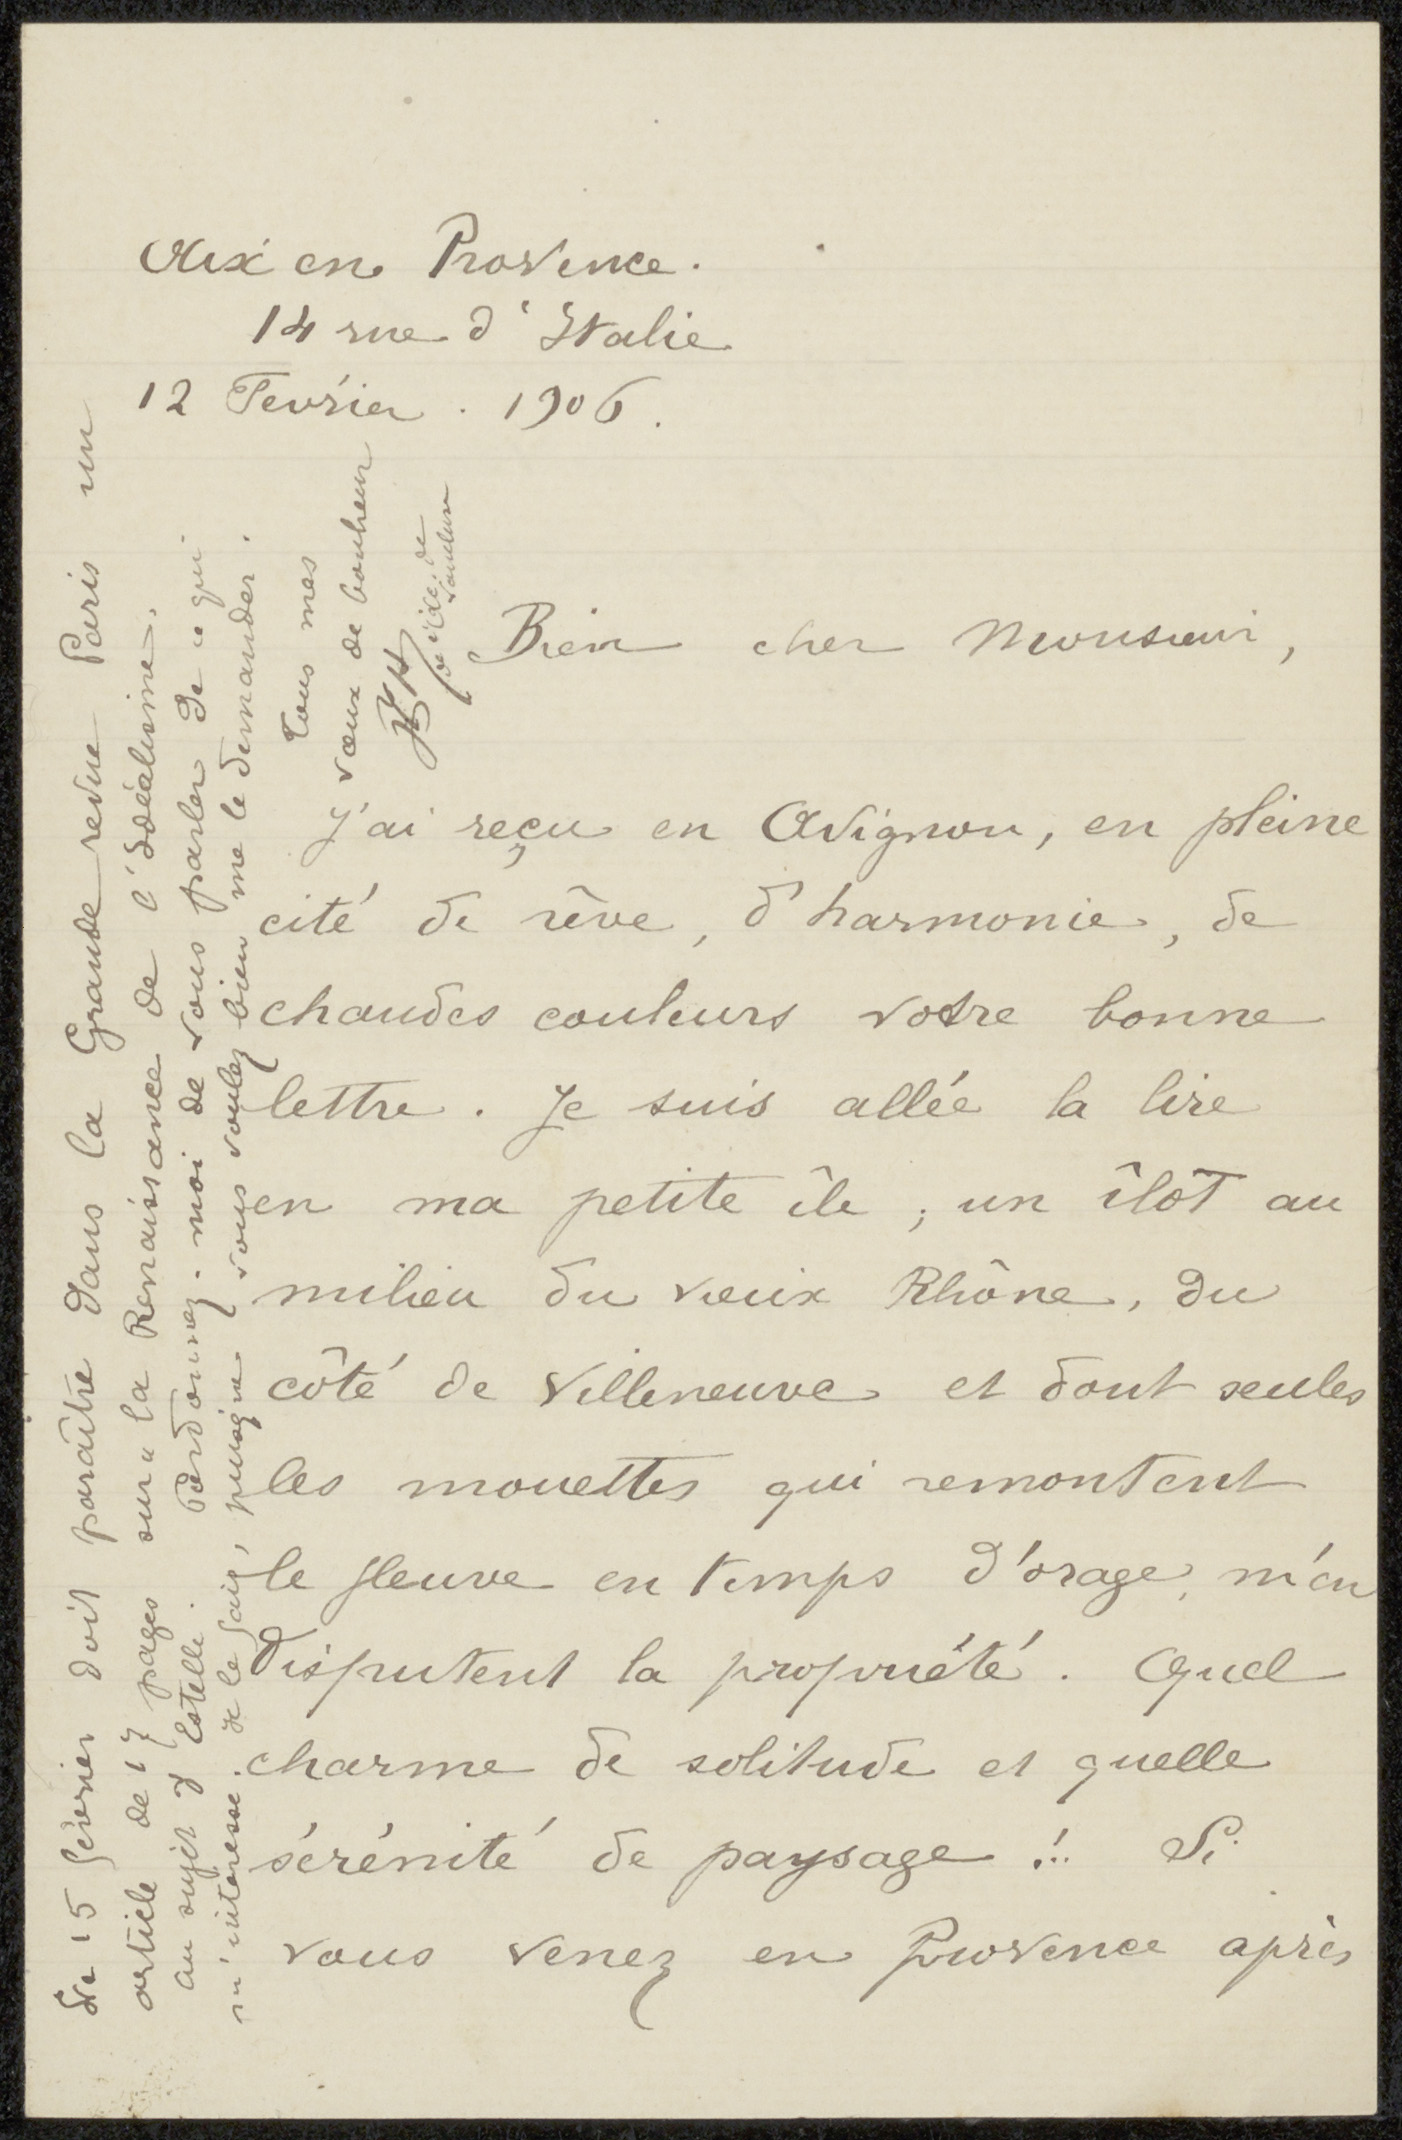 Aix en Provence.
14 rue d'Italie
12 Fevrier. 1906.
Bien cher Monsieur,
J'ai reçu en Avignon, en pleine
cité de rêve, d'harmonie, de
chaudes couleurs votre bonne
lettre. Je suis allée la lire
en ma petite île ; un îlôt au
milieu du vieux Rhône, du
côté de Villeneuve et dont seules
les mouettes qui remontent
le fleuve en temps d'orage, m'en
disputent la propriété. Quel
charme de solitude et quelle
sérénité de paysage !.. Si
vous venez en Provence après
Le 15 février doit paraître dans la Grande revue Paris un
article de 17 pages sur "la Renaissance de l'Idéalisme.
au sujet d'Estelle. Pardonnez-moi de vous parler de ce qui
m'intéresse. Je le fais, puisque vous voulez bien me le demander.
Tous mes
vœux de bonheur